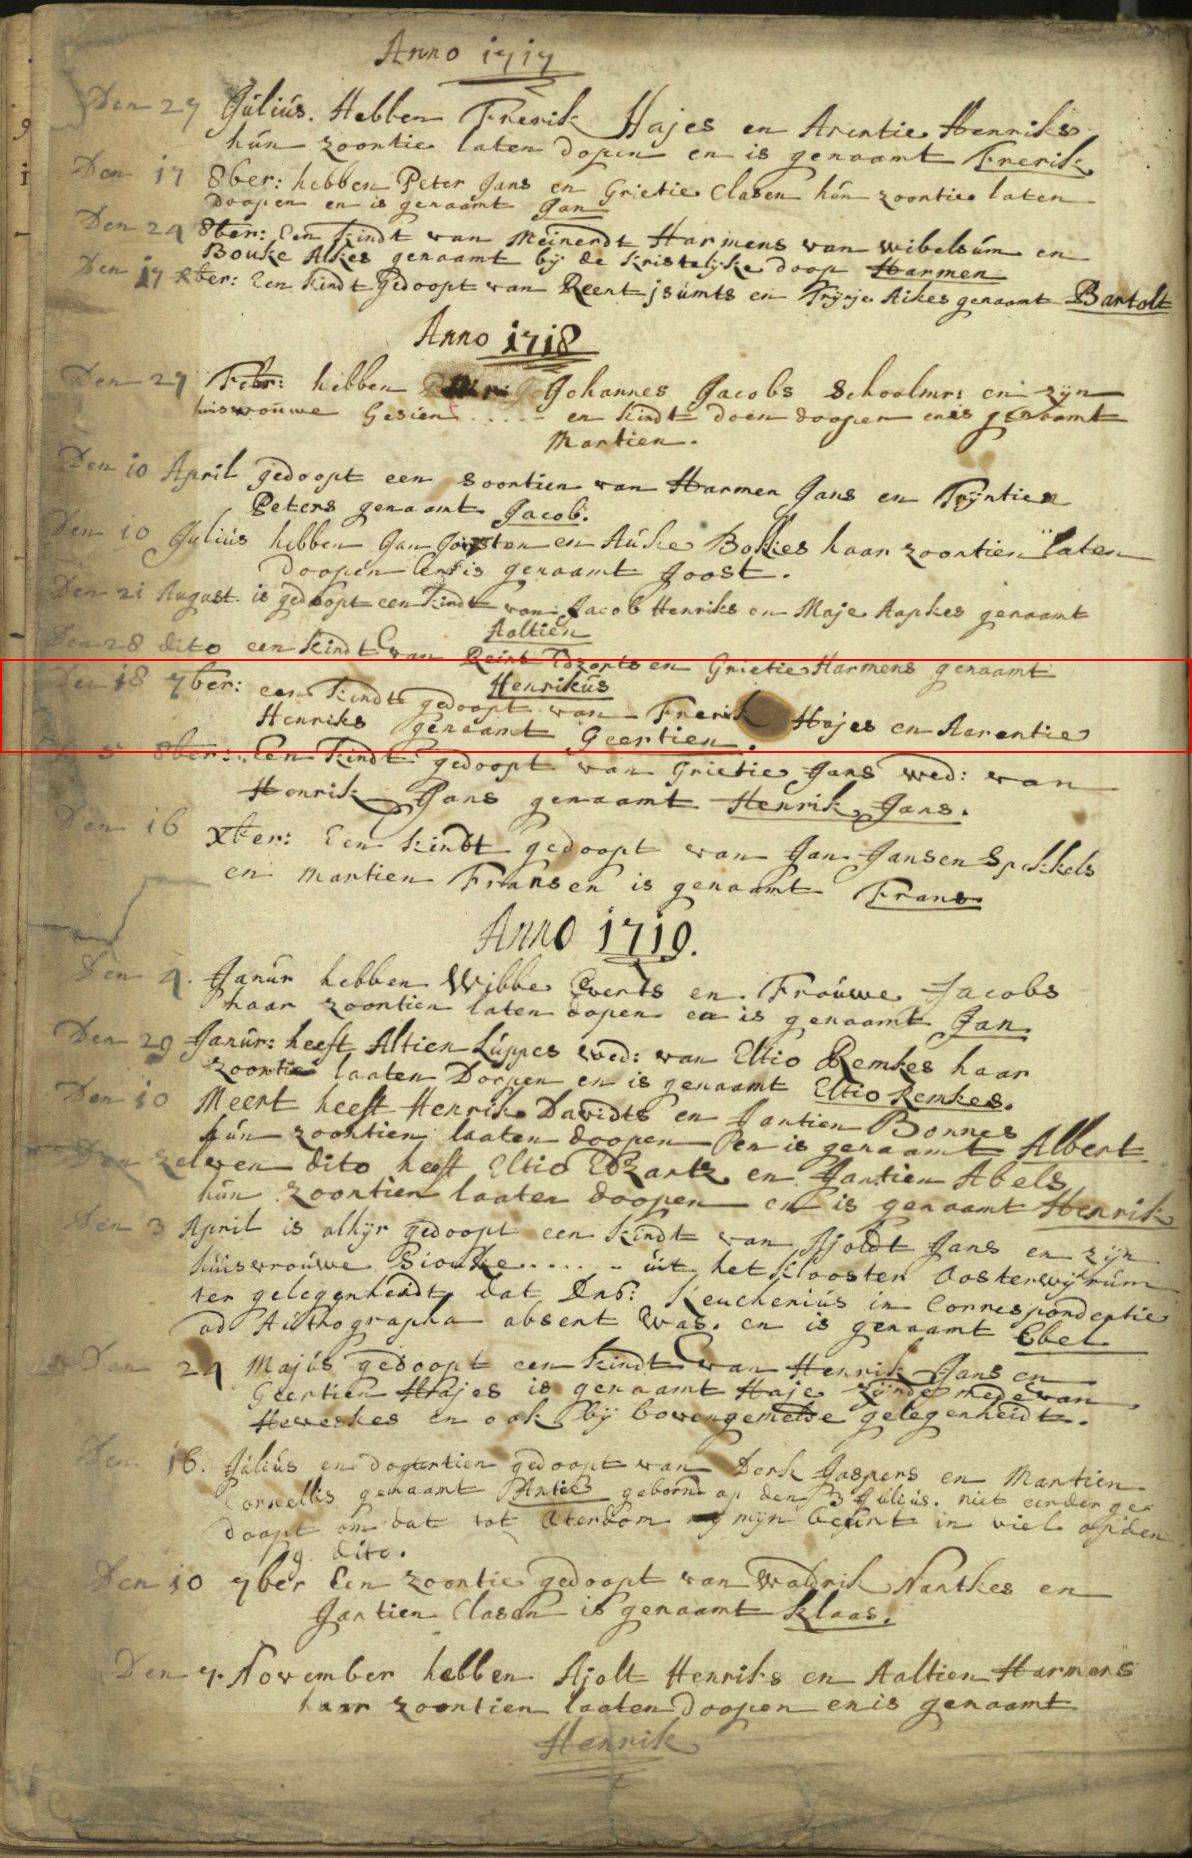 Anno 1717
Den 27 Júliús. Hebben Frerik Hajes en Arentie Henriks
hún zoontie laten dopen en is genaamt Frerik
Den 17 8ber: hebben Peter Jans en Grietie Clasen hún zoontie laten
doopen en is genaamt Jan
Den 24 8ber: Een kindt van Meinerdt Harmens van wibelsúm en
Bouke Alkes genaamt bij de kristelijke doop Harmen
Den 17 xber: Een kindt gedoopt van Reent jsúmts en Trijnje Aikes genaamt Bartolt
Anno 1718
Den 27 Febr: hebben Johannes Jacobs Schoolmr: en zijn
húiswoúwe Gesien ..... en kindt doen doopen en is genaamt
Martien.
Den 10 April gedoopt een soontien van Harmen Jans en Trijntien
Peters genaamt Jacob.
Den 10 Júliús hebben Jan Joosten en Aúke Bokies haar zoontien laten
doopen en is genaamt Joost.
Den 21 August is gedoopt een kindt van Jacob Henriks en Maje Aapkes genaamt
Aaltien
Den 28 dito een kindt van Reint Edzarts en Grietie Harmens genaamt
Henrikús
Den 18 7ber: een kindt gedoopt van Frerik Hajes en Aarentie
Henriks genaamt Geertien.
8ber: Een kindt gedoopt van Grietie Jans wed: van
Henrik Jans genaamt Henrik Jans.
Den 16 xber: Een kindt gedoopt van Jan Jansen Spekkels
en Martien Fransen is genaamt Frans.
Anno 1719.
Den 4. Janúr hebben Wibbe Everts en Froúwe Jacobs
haar zoontien laten dopen en is genaamt Jan.
Den 29 Janúr: heeft Altien Lúppes wed: van Eltio Remkes haar
zoontie laaten Doopen en is genaamt Eltio Remkes.
Den 10 Meert heeft Henrik Davidts en Jantien Bonnes
hún zoontien laaten doopen en is genaamt Albert
Den zelven dito heeft Eltio Edzarts en Jantien Abels
hún zoontien laaten doopen en is genaamt Henrik
Den 3 April is alhijr gedoopt een kindt van Ajoldt Jans en zijn
húisvroúwe Bioúke ...... úit het klooster Oosterwijrúm
ter gelegenheidt dat Dns: Keucheniús in Correspondentie
ad Aúthographa absent was. en is genaamt Ebel
Den 24 Majús gedoopt een kindt van Henrik Jans en
Geertien Hajes is genaamt Haje zijnde mede van
Heveskes en ook bij bovengemelde gelegenheidt.
Den 16. Júliús en dogtertien gedoopt van Derk Jaspers en Martien
Cornellis genaamt Anties geborne op den 3 Júliús. niet eerder ge
doopt om dat tot Oterdom mijn beúrt in viel op den
9 dito.
Den 10 7ber Een zoontie gedoopt van Waldrik Nantkes en
Jantien Clasen is genaamt Klaas.
Den 7. November hebben Ajolt Henriks en Aaltien Harmens
haar zoontien laaten doopen en is genaamt
Henrik